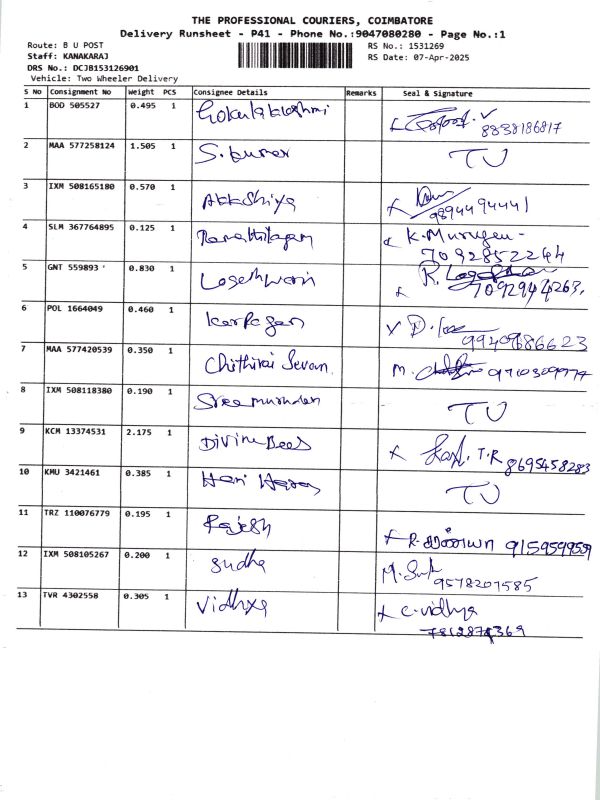 THE PROFESSIONAL COURIERS, COIMBATORE
Delivery Runsheet - P41 - Phone No.:9047080280 - Page No.:1
Route: B U POST RS No.: 1531269
Staff: KANAKARAJ RS Date: 07-Apr-2025
DRS No.: DCJB153126901
Vehicle: Two Wheeler Delivery
S No Consignment No Weight PCS Consignee Details Remarks Seal & Signature
1 BOD 505527 0.495 1 Gokulalakshmi
8838186817
2 MAA 577258124 1.505 1 S. kumar TU
3 IXM 508165180 0.570 1 Akkshiya
9894494441
4 SLM 367764895 0.125 1 K. Murugan
7092852244
5 GNT 559893 0.830 1 Logeshwari R.
7092944263.
6 POL 1664049 0.460 1 Karpagam D.
9940686623
7 MAA 577420539 0.350 1 Chithirai Sevan. M.
8 IXM 508118380 0.190 1 TU
9 KCM 13374531 2.175 1 Divine Bees T.R 8695458283
10 KMU 3421461 0.385 1 Hari Haran TU
11 TRZ 110076779 0.195 1 Rajesh R. 9159599509
12 IXM 508105267 0.200 1 Sudha M.
9578207585
13 TVR 4302558 0.305 1 Vidhya C. vidhya